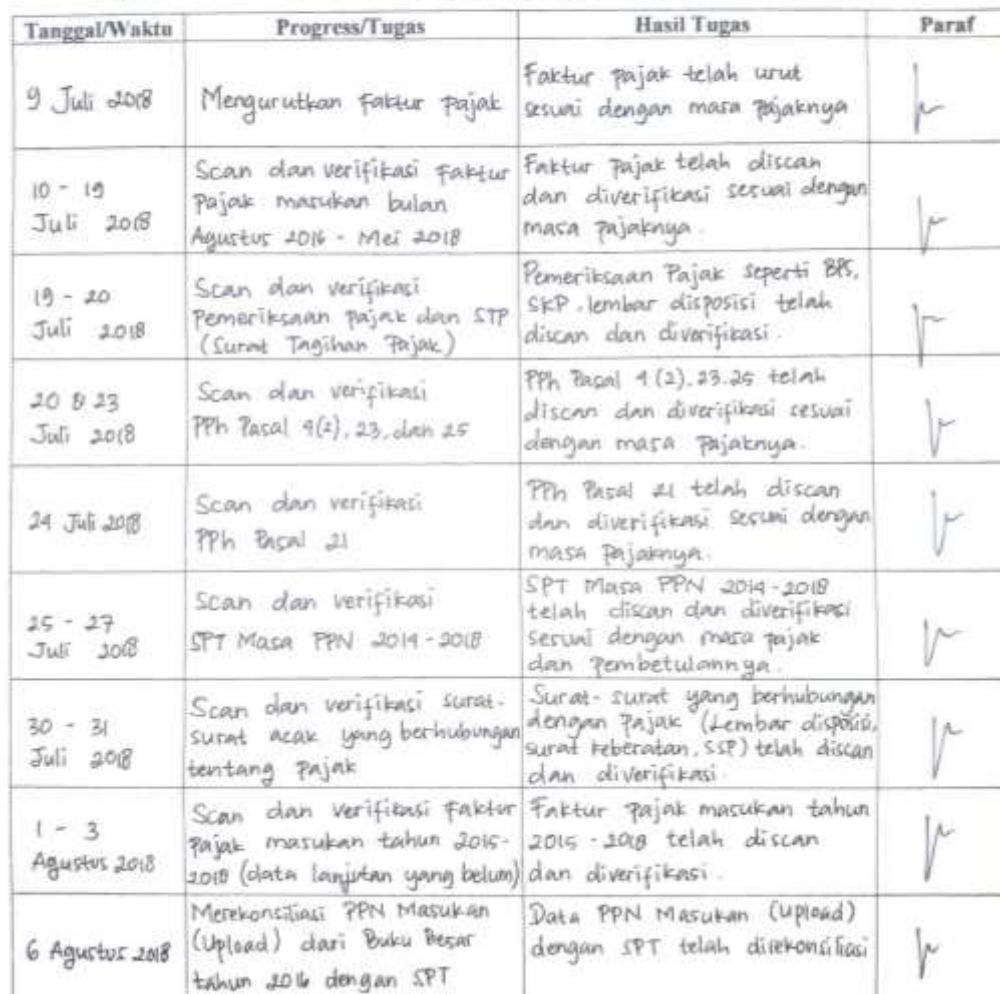 Tanggal/Waktu Progress/Tugas Hasil Tugas Paraf
9 Juli 2018
Mengurutkan Faktur Pajak
Faktur pajak telah urut
sesuai dengan masa pajaknya
10 - 19
Juli 2018
Scan dan verifikasi Faktur
Pajak masukan bulan
Agustus 2016 - Mei 2018
Faktur Pajak telah discan
dan diverifikasi sesuai dengan
masa pajaknya.
19 - 20
Juli 2018
Scan dan verifikasi
Pemeriksaan pajak dan STP
(Surat Tagihan Pajak)
Pemeriksaan Pajak seperti BPS,
SKP, lembar disposisi telah
discan dan diverifikasi.
20 & 23
Juli 2018
Scan dan verifikasi
PPh Pasal 4(2), 23, dan 25
PPh Pasal 4(2), 23, 25 telah
discan dan diverifikasi sesuai
dengan masa Pajaknya.
24 Juli 2018
Scan dan verifikasi
PPh Pasal 21
PPh Pasal 21 telah discan
dan diverifikasi sesuai dengan
masa Pajaknya.
25 - 27
Juli 2018
Scan dan verifikasi
SPT Masa PPN 2014-2018
SPT Masa PPN 2014-2018
telah discan dan diverifikasi
sesuai dengan masa pajak
dan Pembetulannya.
30 - 31
Juli 2018
Scan dan verifikasi surat-
surat acak yang berhubungan
tentang Pajak
Surat-surat yang berhubungan
dengan Pajak (Lembar disposisi,
surat keberatan, SSP) telah discan
dan diverifikasi.
1 - 3
Agustus 2018
Scan dan verifikasi Faktur
Pajak masukan tahun 2015-
2018 (data lanjutan yang belum)
Faktur Pajak masukan tahun
2015 - 2018 telah discan
dan diverifikasi.
6 Agustus 2018
Merekonsiliasi PPN Masukan
(Upload) dari Buku Besar
tahun 2016 dengan SPT
Data PPN Masukan (Upload)
dengan SPT telah direkonsiliasi